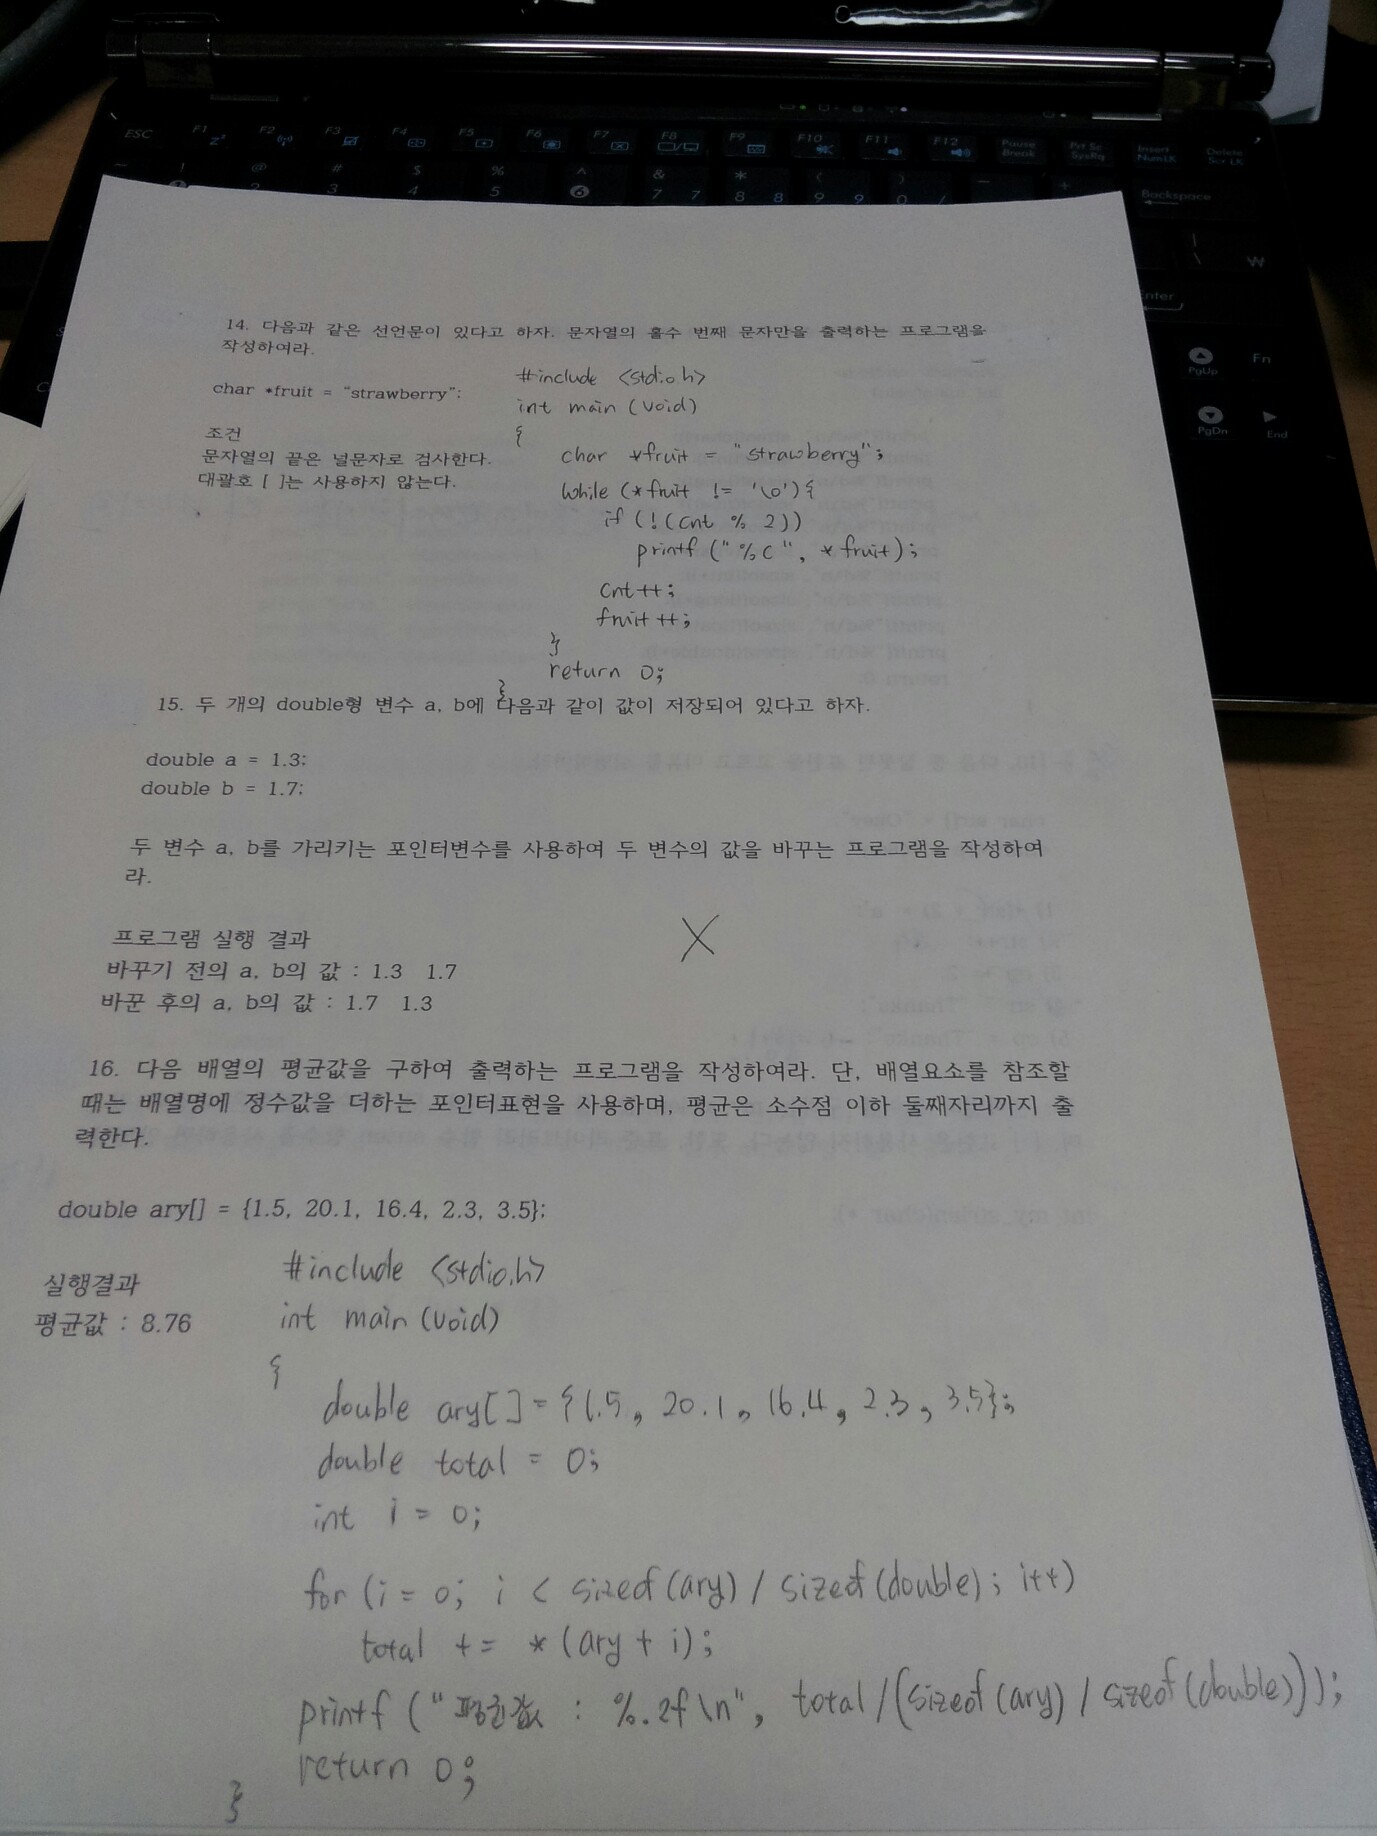 ESC F1 F2 F3 F4 F5 F6 F7 F8 F9 F10 F11 F12 Pause Break Prt Sc SysRq Insert NumLK Delete Scr LK
! @ # $ % ^ & * ( ) - +
2 3 4 5 6 7 7 8 8 9 9 0 / Backspace
| \ ₩
Enter
PgUp Fn
PgDn End
14. 다음과 같은 선언문이 있다고 하자. 문자열의 홀수 번째 문자만을 출력하는 프로그램을
작성하여라.
char *fruit = "strawberry";
조건
문자열의 끝은 널문자로 검사한다.
대괄호 [ ]는 사용하지 않는다.
#include <stdio.h>
int main (void)
{
char *fruit = "strawberry";
while (*fruit != '\0'){
if (!(cnt % 2))
printf ("%c", *fruit);
cnt++;
fruit++;
}
return 0;
}
15. 두 개의 double형 변수 a, b에 다음과 같이 값이 저장되어 있다고 하자.
double a = 1.3;
double b = 1.7;
두 변수 a, b를 가리키는 포인터변수를 사용하여 두 변수의 값을 바꾸는 프로그램을 작성하여
라.
X
프로그램 실행 결과
바꾸기 전의 a, b의 값 : 1.3 1.7
바꾼 후의 a, b의 값 : 1.7 1.3
16. 다음 배열의 평균값을 구하여 출력하는 프로그램을 작성하여라. 단, 배열요소를 참조할
때는 배열명에 정수값을 더하는 포인터표현을 사용하며, 평균은 소수점 이하 둘째자리까지 출
력한다.
double ary[] = {1.5, 20.1, 16.4, 2.3, 3.5};
실행결과
평균값 : 8.76
#include <stdio.h>
int main (void)
{
double ary[] = {1.5, 20.1, 16.4, 2.3, 3.5};
double total = 0;
int i = 0;
for (i = 0; i < sizeof(ary) / sizeof(double); i++)
total += *(ary + i);
printf ("평균값 : %.2f\n", total/(sizeof(ary) / sizeof(double)));
return 0;
}